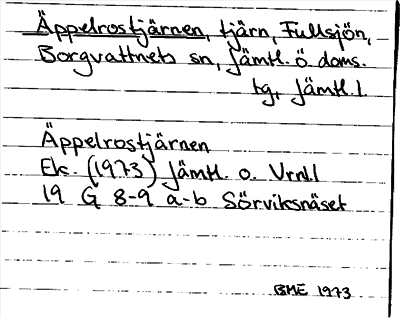 Äppelrostjärnen, tjärn, Fullsjön,
Borgvattnets sn, Jämtl. ö. doms.
tg, Jämtl. l.
Äppelrostjärnen
Ek. (1973) Jämtl. o. Vrml
19 G 8-9 a-b Sörviksnäset
BME 1973